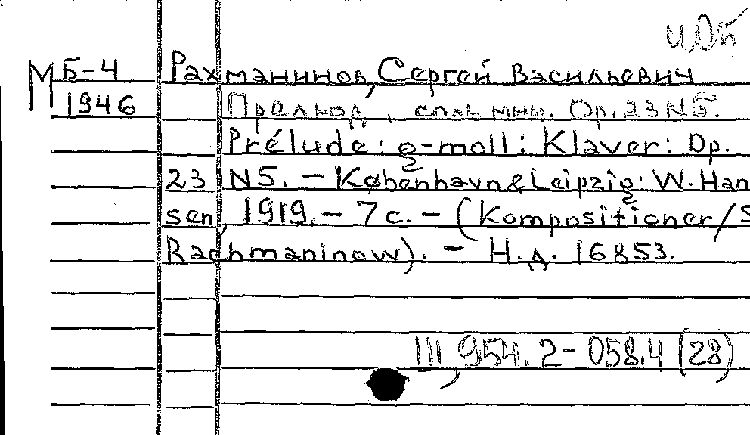 и.Об
М Б-4 Рахманинов, Сергей Васильевич
1946 Прелюд, соль мин. Op. 23 N5.
Prélude: g-moll: Klaver: Op.
23 N5. — København & Leipzig: W. Han
sen, 1919. — 7 с. — (Kompositioner/S
Rachmaninow). — Н.д. 16853.
III, 954. 2 - 058.4 (28)